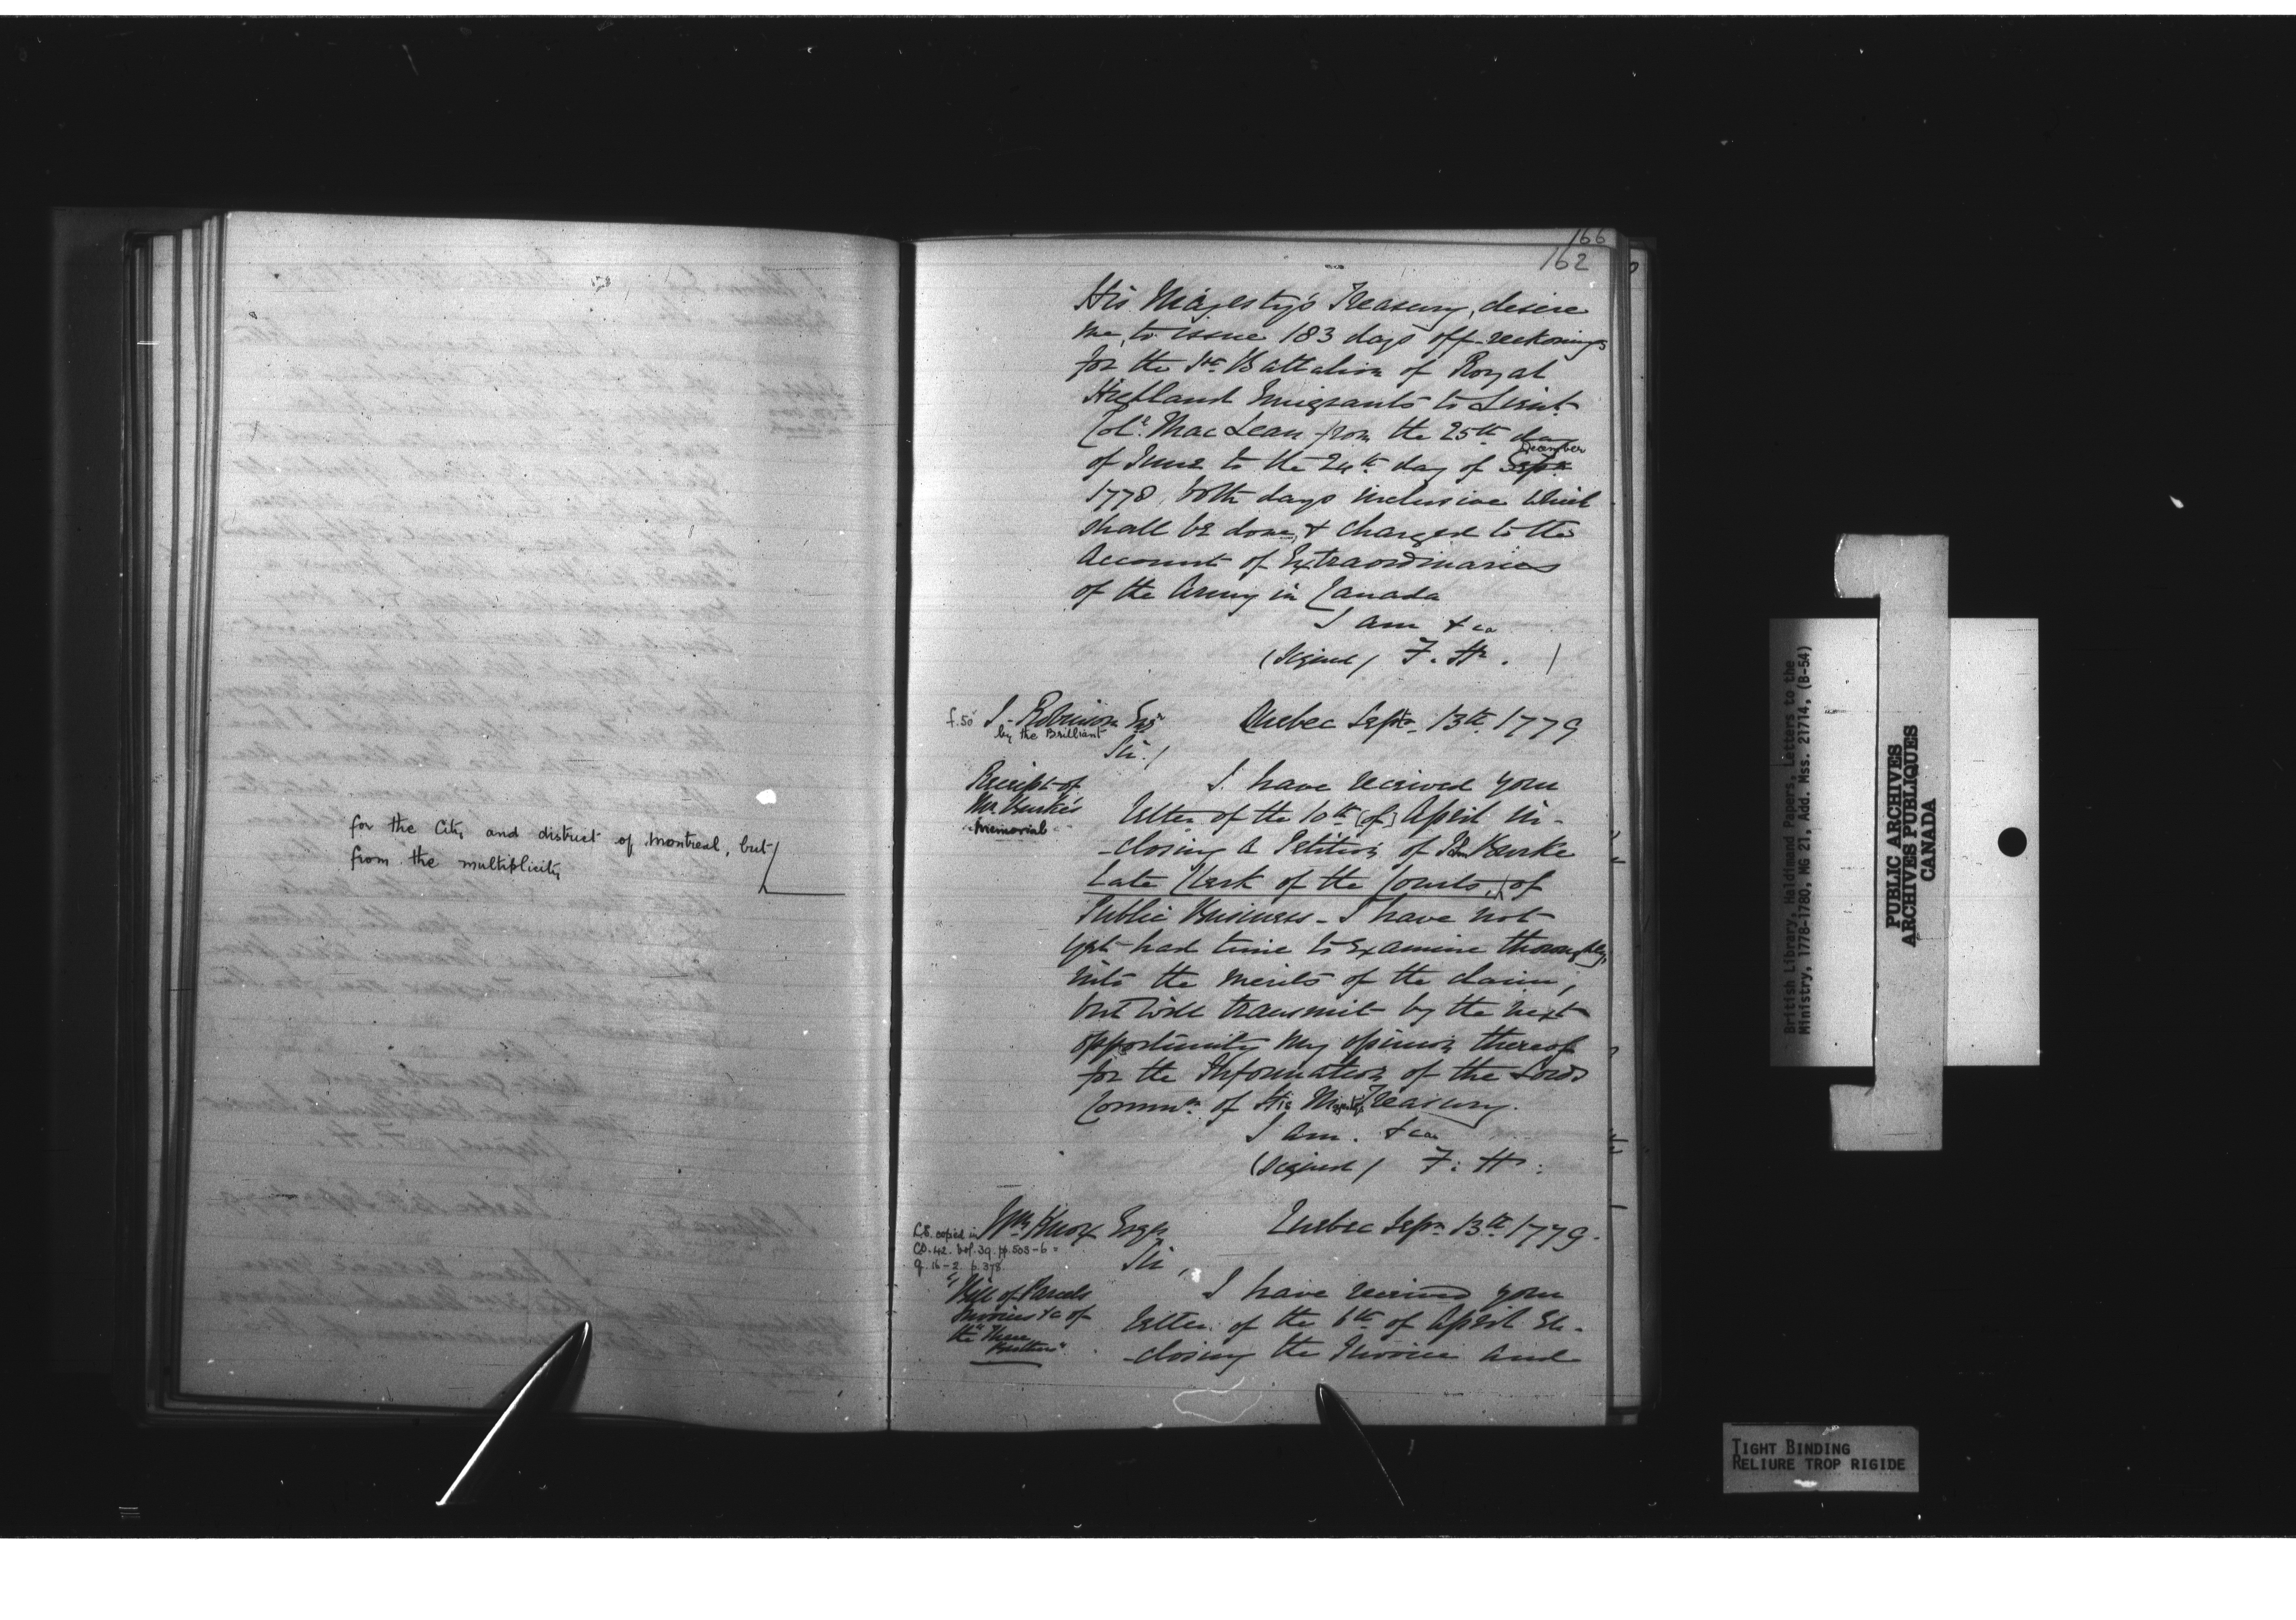 for the City and district of Montreal, but
from the multiplicity
166
162
His Majesty's Treasury, desire
me, to issue 183 days off-reckonings
for the 1st Battalion of Royal
Highland Emigrants to Lieut.
Coll. MacLean from the 25th day
December
of June to the 24th day of Septr
1778, both days inclusive which
shall be done, & charged to the
Account of Extraordinaries
of the Army in Canada
I am &ca
(Signed) F. H.
f.50 J. Robinson Esqr Quebec Septr 13th 1779
by the Brilliant
Sir /
Receipt of I have received your
Mr Burke's letter of the 10th (of) April in-
Memorial
-closing a Petition of Jn Burke
Late Clerk of the Courts, of
Public Business - I have not
yet had time to examine thoroughly,
into the merits of the claim,
but will transmit by the next
opportunity my opinion thereof
for the Information of the Lords
Commrs of His Majesty's Treasury.
I am. &ca
(Signed) F: H:
Wm Knox Esqr Quebec Sepr 13th 1779.
L.S. copied in
CO. 42. vol. 39. pp. 503-6 =
Q. 16-2. p. 378.
Sir,
Bill of Parcels I have received your
Invoices &c of letter of the 6th of April En-
the "Three
Brothers" -closing the Invoice and
British Library, Haldimand Papers, Letters to the
Ministry, 1778-1780, MG 21, Add. Mss. 21714, (B-54)
PUBLIC ARCHIVES
ARCHIVES PUBLIQUES
CANADA
TIGHT BINDING
RELIURE TROP RIGIDE